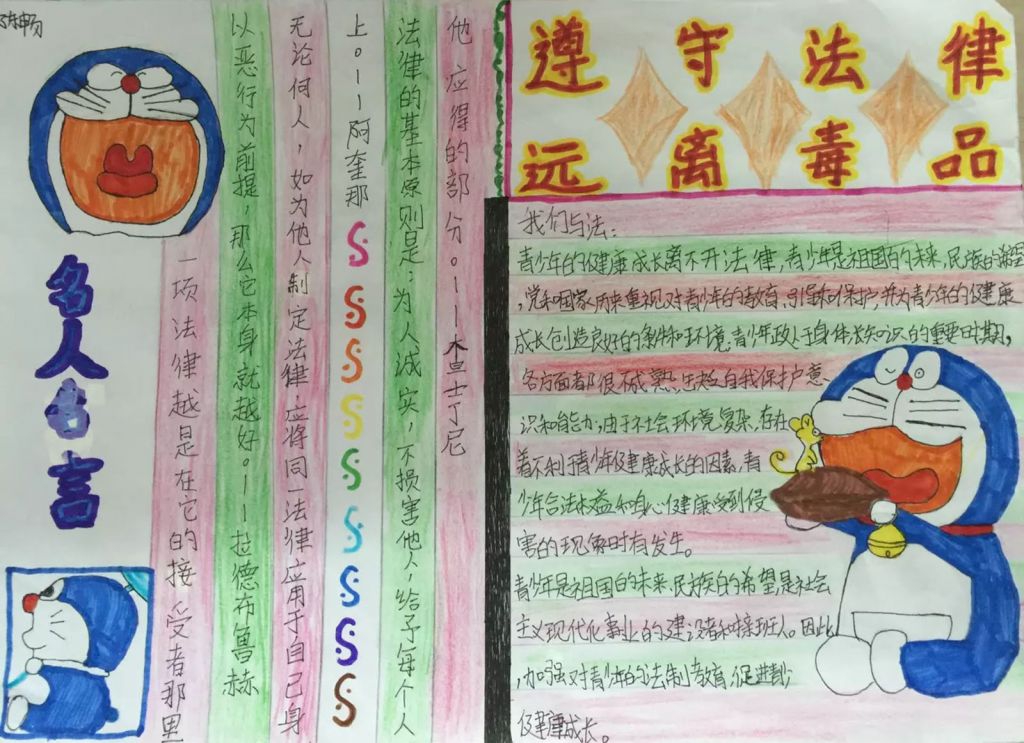 陈畅
名人名言
一项法律越是在它的接受者那里
以恶行为前提，那么它本身就越好。——拉德布鲁赫
无论何人，如为他人制定法律，应将同一法律应用于自己身
上。——阿奎那
法律的基本原则是：为人诚实，不损害他人，给予每个人
他应得的部分。——查士丁尼
遵守法律
远离毒品
我们与法：
青少年的健康成长离不开法律，青少年是祖国的未来，民族的希望
，党和国家历来重视对青少年的教育、引导和保护，并为青少年的健康
成长创造良好的条件和环境，青少年处于身体长知识的重要时期，
各方面都很不成熟，缺乏自我保护意
识和能力，由于社会环境复杂，存在
着不利于青少年健康成长的因素，青
少年合法权益和身心健康受到侵
害的现象时有发生。
青少年是祖国的未来，民族的希望，是社会
主义现代化事业的建设者和接班人。因此
，加强对青少年的法制教育，促进青少
健康成长。